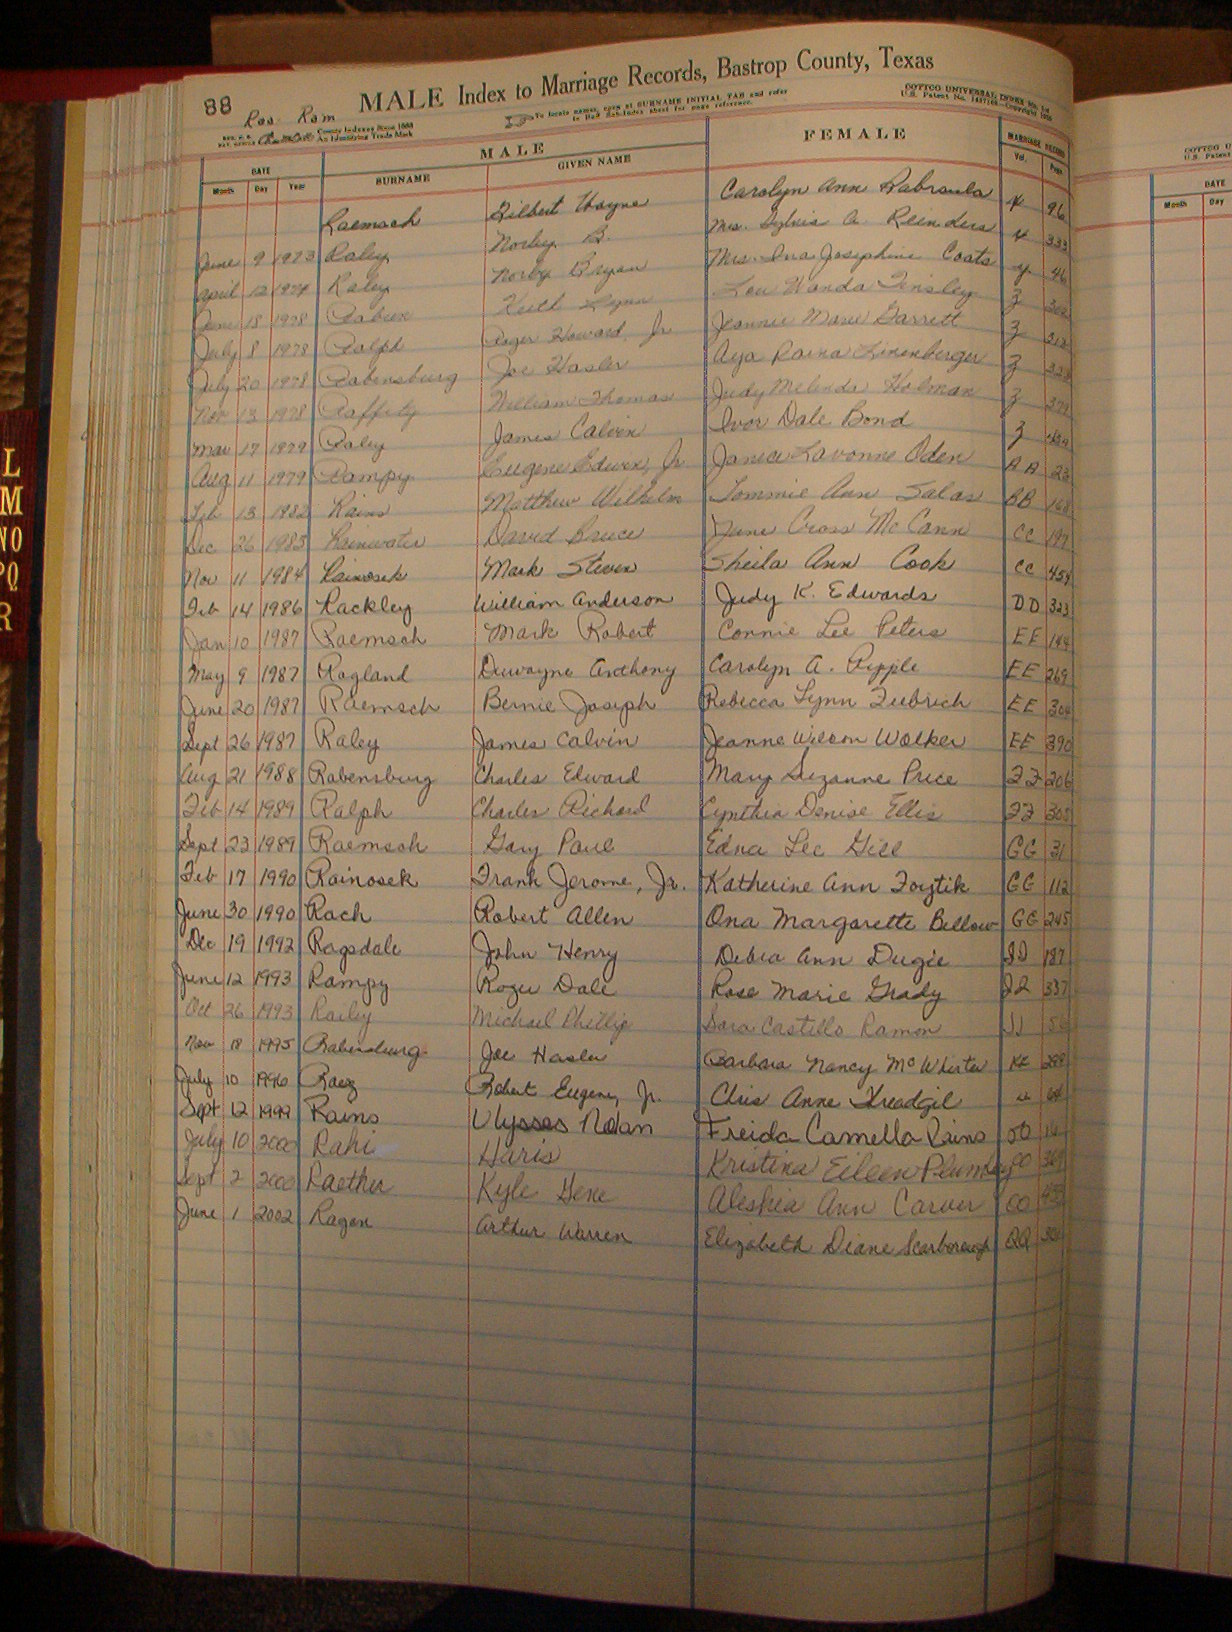 88
Raa- Ram
MALE Index to Marriage Records, Bastrop County, Texas
To locate names, open at SURNAME INITIAL TAB and refer
to Sub-Index sheet for page reference.
COTTCO UNIVERSAL INDEX
U.S. Patent No. Copyright
County Indexes Since 1888
An Identifying Trade Mark
MALE FEMALE MARRIAGE RECORD
DATE SURNAME GIVEN NAME Vol. Page
Month Day Year
Raemsch Gilbert Wayne Carolyn Ann 96
June 9 1973 Raley Norley B. Mrs. A. Reinders 333
April 12 1974 Raley Norby Bryan Mrs. Ina Josephine Coats y 46
June 18 1978 Raburn Keith Lynn Lou Wanda Tinsley Z
July 8 1978 Ralph Roger Howard, Jr. Jeannie Marie Garrett Z
July 20 1978 Rabensburg Joe Hasler Aya Raina Linenberger Z
Nov 13 1978 Rafferty William Thomas Judy Melinda Holman Z
Mar 17 1979 Raley James Calvin Ivor Dale Bond Z
Aug 11 1979 Rampy Eugene Edwin, Jr. Janice Lavonne Oden AA 23
Feb 13 1982 Rains Matthew Wilhelm Tommie Ann Salas BB 168
Dec 26 1983 Rainwater David Bruce June Cross McCann CC 197
Nov 11 1984 Rainosek Mark Steven Sheila Ann Cook CC 454
Feb 14 1986 Rackley William Anderson Judy K. Edwards DD 323
Jan 10 1987 Raemsch Mark Robert Connie Lee Peters EE 144
May 9 1987 Ragland Dewayne Anthony Carolyn A. Ripple EE 269
June 20 1987 Raemsch Bernie Joseph Rebecca Lynn Zubrich EE 304
Sept 26 1987 Raley James Calvin Jeanne Wilson Walker EE 390
Aug 21 1988 Rabensburg Charles Edward Mary Suzanne Price FF 206
Feb 14 1989 Ralph Charles Richard Cynthia Denise Ellis FF 305
Sept 23 1989 Raemsch Gary Paul Edna Lee Gill GG 31
Feb 17 1990 Rainosek Frank Jerome, Jr. Katherine Ann Fojtik GG 112
June 30 1990 Rach Robert Allen Ona Margarette Bellow GG 245
Dec 19 1992 Ragsdale John Henry Debra Ann Dugie II 187
June 12 1993 Rampy Roger Dale Rose Marie Grady 337
Oct 26 1993 Railey Michael Phillip Sara Castello Ramon JJ
Nov 18 1995 Rabensburg Joe Hasler Barbara Nancy McWhirter KK 288
July 10 1996 Raez Robert Eugene, Jr. Chris Anne Threadgil LL 64
Sept 12 1999 Rains Ulysses Nolan Freida Camella Rains OO
July 10 2000 Rahi Haris Kristina Eileen Plumley OO
Sept 2 2000 Raether Kyle Gene Aleshia Ann Carver OO
June 1 2002 Ragan Arthur Warren Elizabeth Diane Scarborough QQ
L
M
NO
PQ
R
COTTCO
U.S. Patent
DATE
Month Day